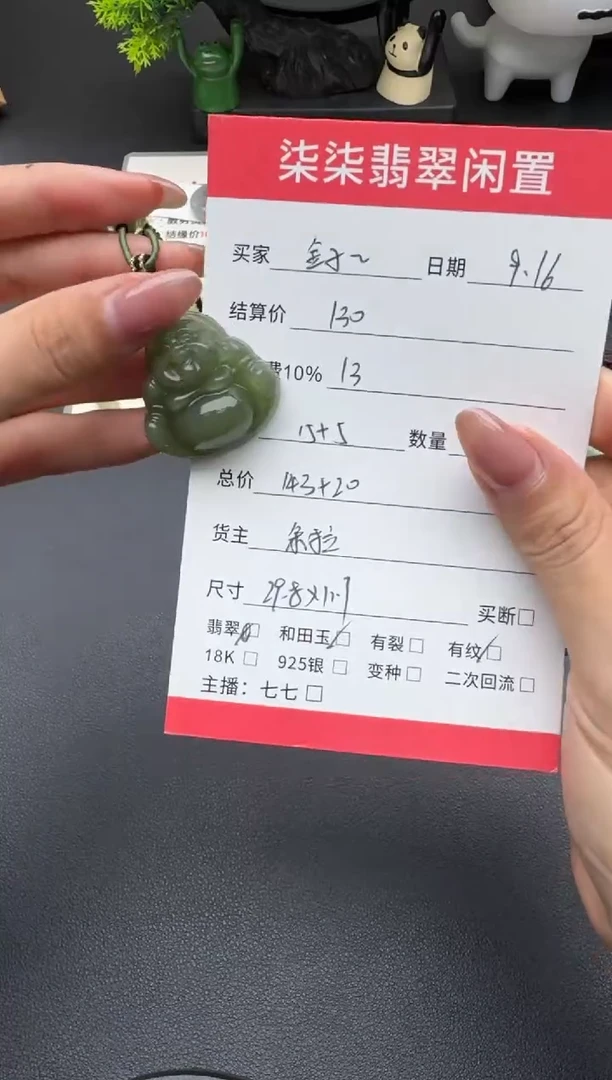 柒柒翡翠闲置
结缘价1
买家 日期 9.16
结算价 130
费10% 13
15+5 数量
总价 143+20
货主
尺寸 29.8×11.1 买断□
翡翠□ 和田玉□ 有裂□ 有纹□
18K □ 925银 □ 变种□ 二次回流□
主播：七七 □